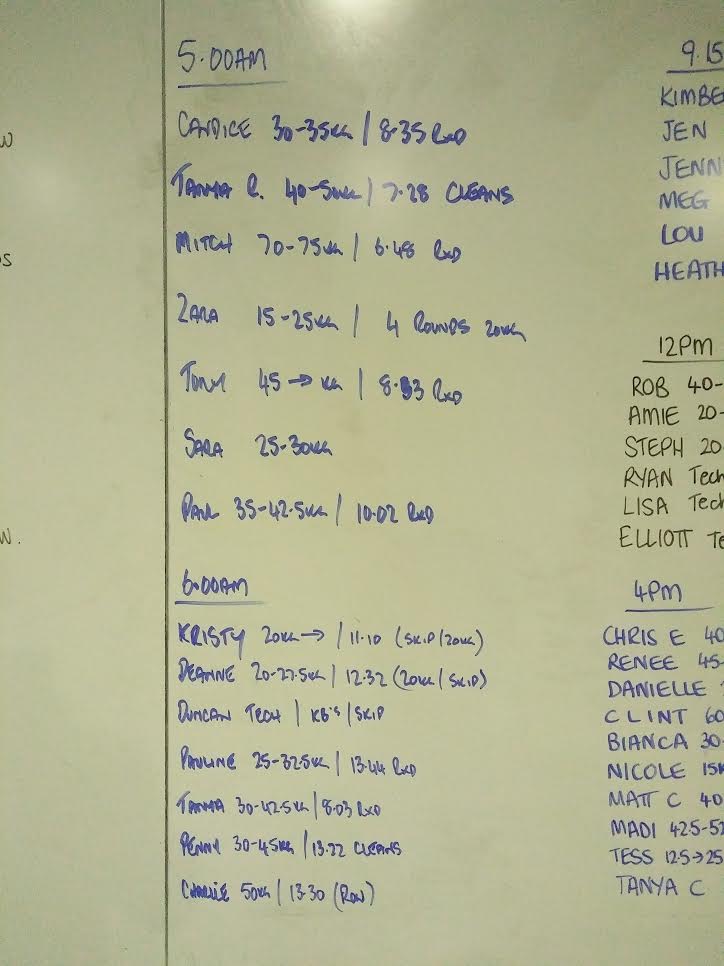 W
S
W.
5.00AM
CANDICE 30-35KG / 8.35 RXD
TANYA R. 40-50KG / 7.28 CLEANS
MITCH 70-75KG / 6.48 RXD
ZARA 15-25KG / 4 ROUNDS 20KG
TONY 45 → KG / 8.33 RXD
SARA 25-30KG
PAUL 35-42.5KG / 10.02 RXD
6.00AM
KRISTY 20KG → / 11.10 (SKIP/20KG)
DEANNE 20-27.5KG / 12.32 (20KG/SKIP)
DUNCAN TECH / KB'S/SKIP
PAULINE 25-32.5KG / 13.44 RXD
TANYA 30-42.5KG / 8.03 RXD
PENNY 30-45KG / 13.22 CLEANS
CHARLIE 50KG / 13.30 (ROW)
9.15
KIMBE
JEN
JENN
MEG
LOU
HEATH
12PM
ROB 40-
AMIE 20-
STEPH 20
RYAN Tech
LISA Tech
ELLIOTT Te
4PM
CHRIS E 40
RENEE 45-
DANIELLE
CLINT 60
BIANCA 30-
NICOLE 15K
MATT C 40
MADI 42.5-52
TESS 12.5→25
TANYA C